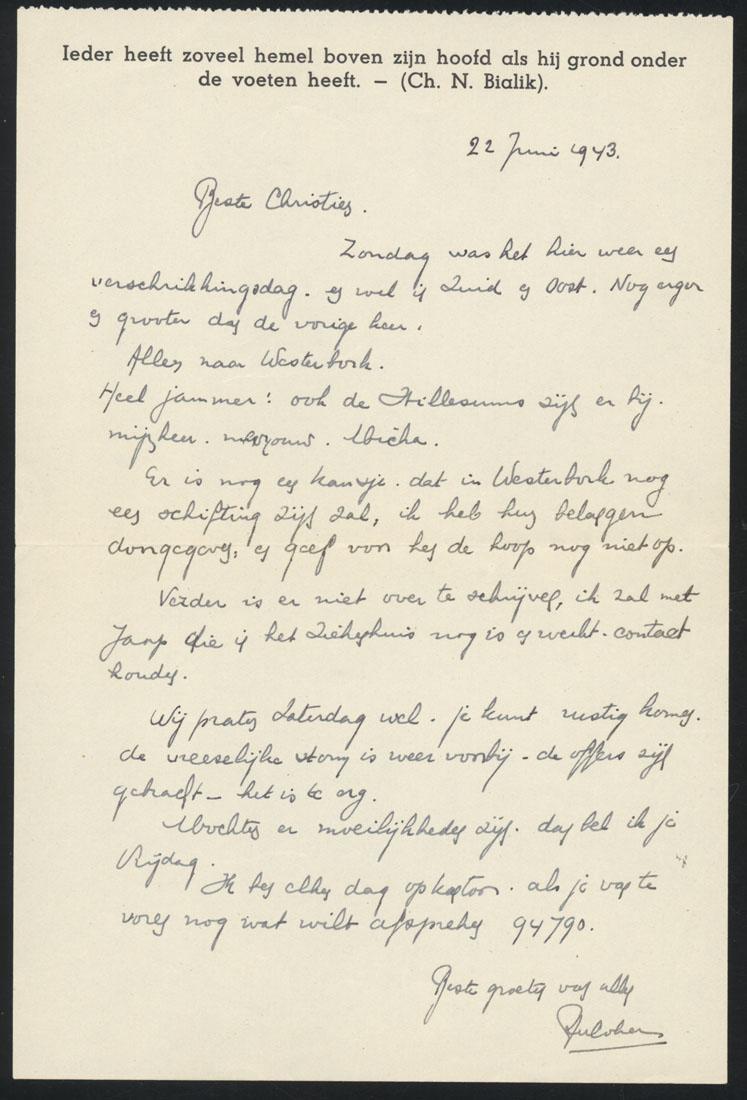 Ieder heeft zoveel hemel boven zijn hoofd als hij grond onder
de voeten heeft. – (Ch. N. Bialik).
22 Juni 1943.
Beste Christien.
Zondag was het hier weer een
verschrikkingsdag. en wel in Zuid en Oost. Nog erger
en grooter dan de vorige keer.
Allen naar Westerbork.
Heel jammer: ook de Hillesums zijn er bij.
mijnheer. mevrouw. Mischa.
Er is nog een kansje. dat in Westerbork nog
een schifting zijn zal, ik heb hun belangen
doorgegeven, en geef voor hen de hoop nog niet op.
Verder is er niet over te schrijven, ik zal met
Jaap die in het Ziekenhuis nog is en werkt. contact
houden.
Wij praten Zaterdag wel. je kunt rustig komen.
de vreeselijke storm is weer voorbij - de offers zijn
gebracht - het is te erg.
Mochten er moeilijkheden zijn. dan bel ik je
Vrijdag.
Ik ben elken dag op kantoor. als je van te
voren nog wat wilt afspreken 94790.
Beste groeten van allen